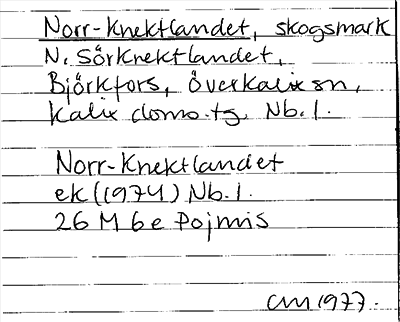 Norr-Knektlandet, skogsmark
N. Sörknektlandet,
Björkfors, Överkalix sn,
Kalix doms.tg. Nb. l.
Norr-Knektlandet
ek (1974) Nb. l.
26 M 6 e Pojmis
CM 1977.